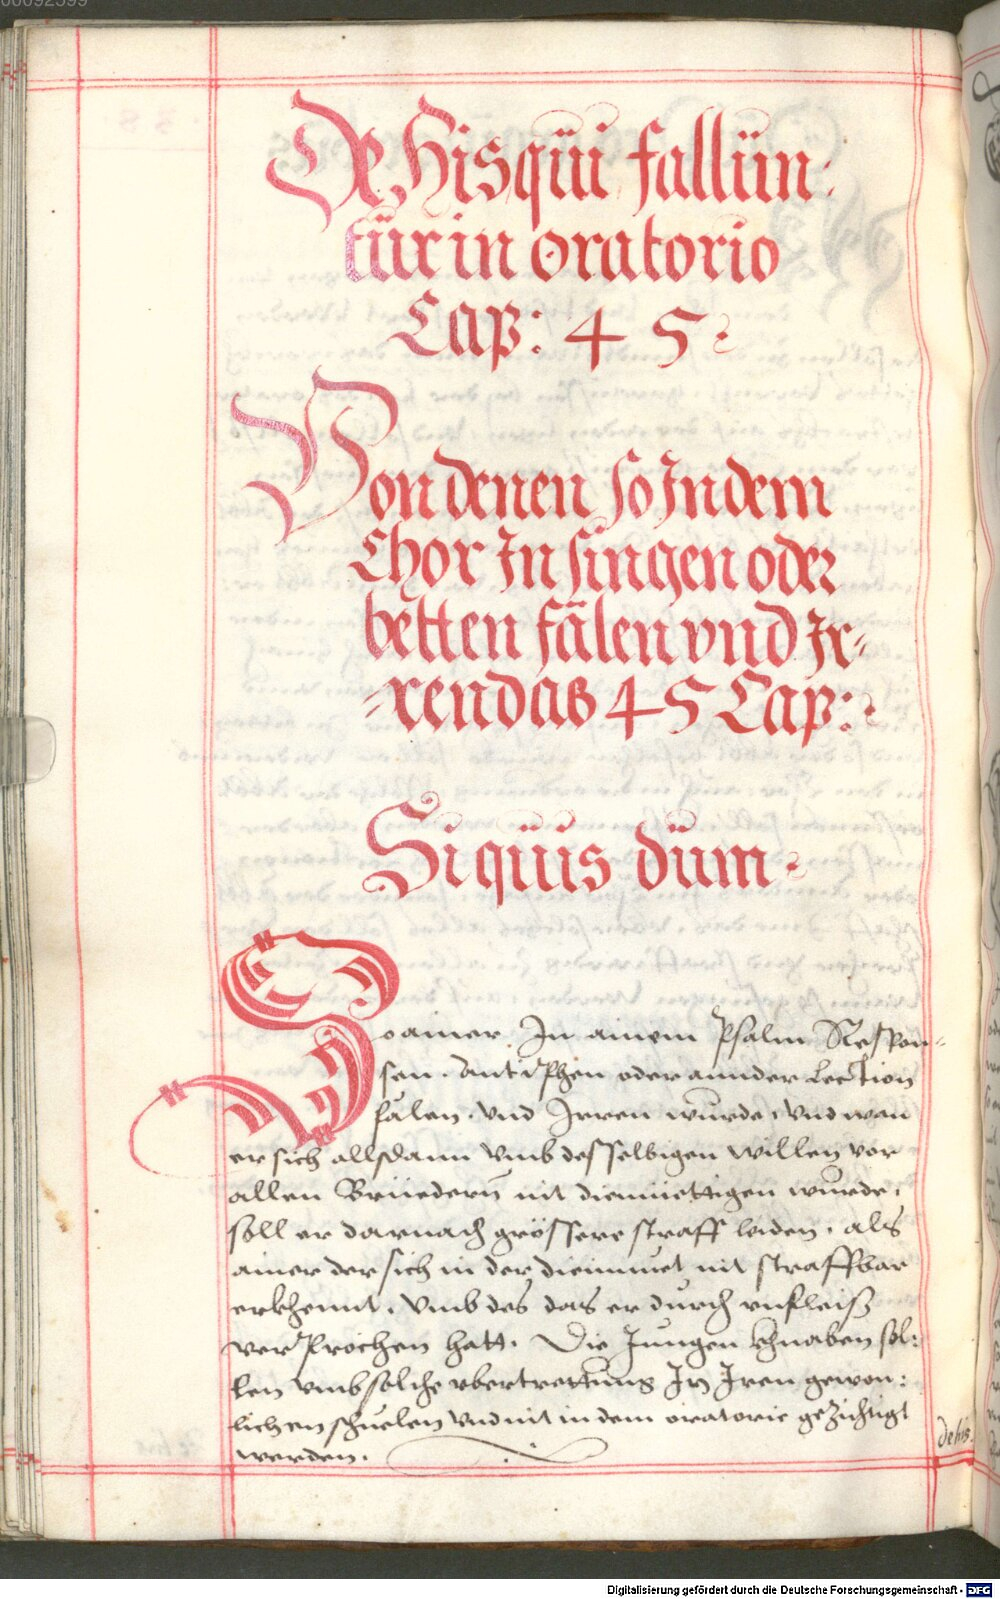 00092599
De His qüi fallün:
tür in oratorio
Cap: 4 5
Von denen so In dem
Chor In singen oder
betten fälen vnd Ir=
=ren das 4 5 Cap:
Si qüis düm
So ainer In ainem Psalm Respon=
sen. Antiphen oder annder Lection
fälen. vnd Irren wurde, vnd wan
er sich allsdann vmb desselbigen willen vor
allen Brüedern nit diemüettigen wurde,
soll er darnach grössere straff leiden. als
ainer der sich in der diemuet nit straffbar
erkhennt. vmb des das er durch vnfleiß
verprochen hatt. Die Jungen khnaben sol:
len vmb solche vbertrettung In Iren gewon:
lichen schuelen vnd nit in dem oratorio gezichtigt
werden.
de his
Digitalisierung gefördert durch die Deutsche Forschungsgemeinschaft - DFG